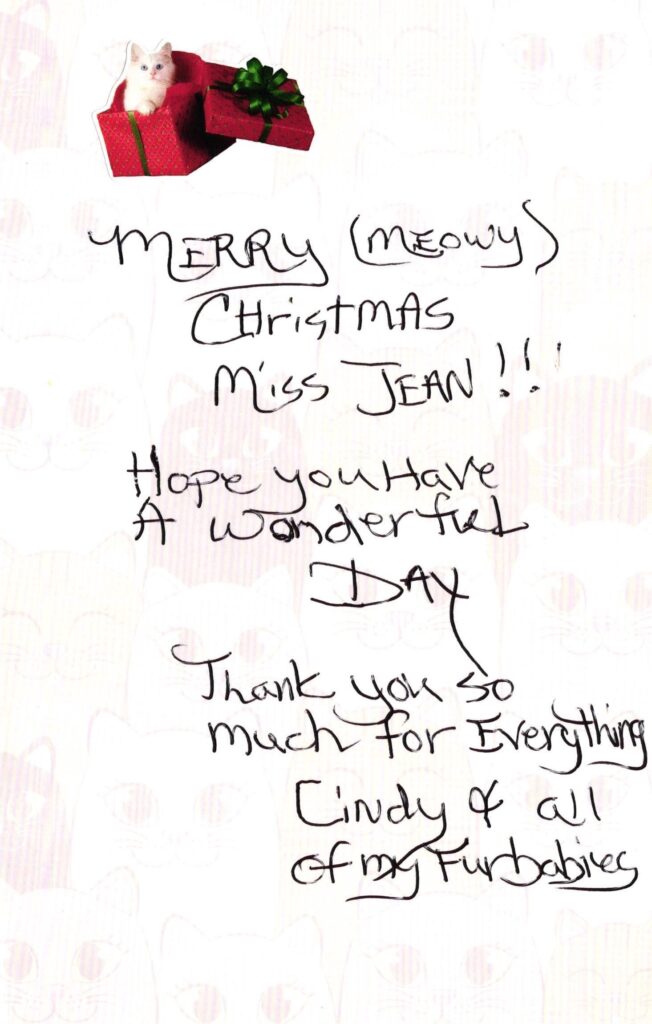 MERRY (MEOWY)
CHristMAS
Miss JEAN!!!
Hope you Have
A wonderful
DAY
Thank you so
much for Everything
Cindy & all
of my Furbabies